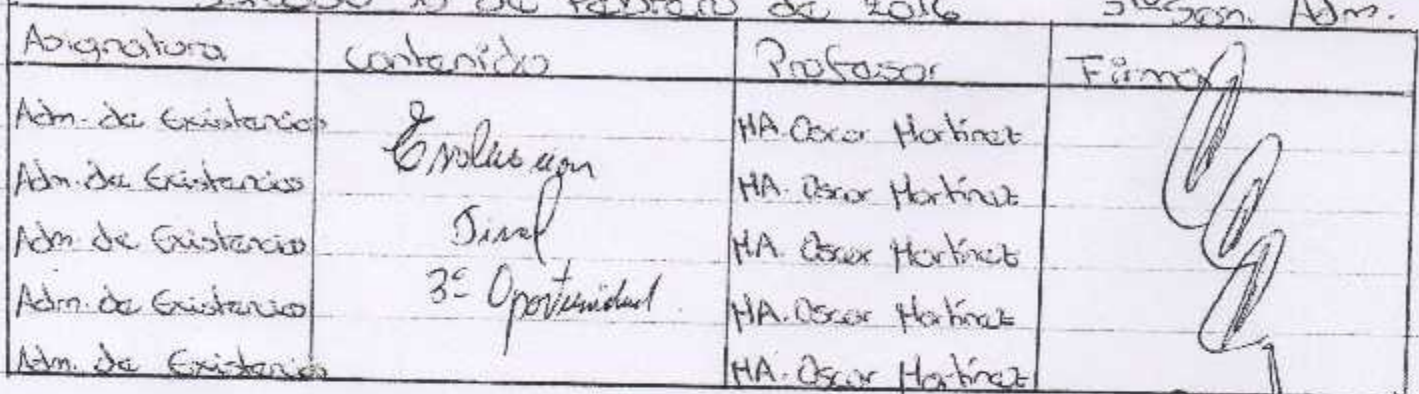 de Febrero de 2016 Sem. Adm.
Asignatura Contenido Profesor Firma
Adm. de Existencias HA. Oscar Martínez
Evaluación
Adm. de Existencias HA. Oscar Martínez
Adm. de Existencias Final HA. Oscar Martínez
Adm. de Existencias 3ª Oportunidad HA. Oscar Martínez
Adm. de Existencias HA. Oscar Martínez